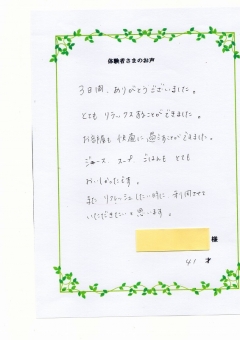 体験者さまのお声
3日間、ありがとうございました。
とても リラックスすることができました。
お部屋も 快適に 過ごすことができました。
ジュース、スープ、ごはんも とても
おいしかったです。
また、リフレッシュしたい時に 利用させて
いただきたいと思います。
様
41 才